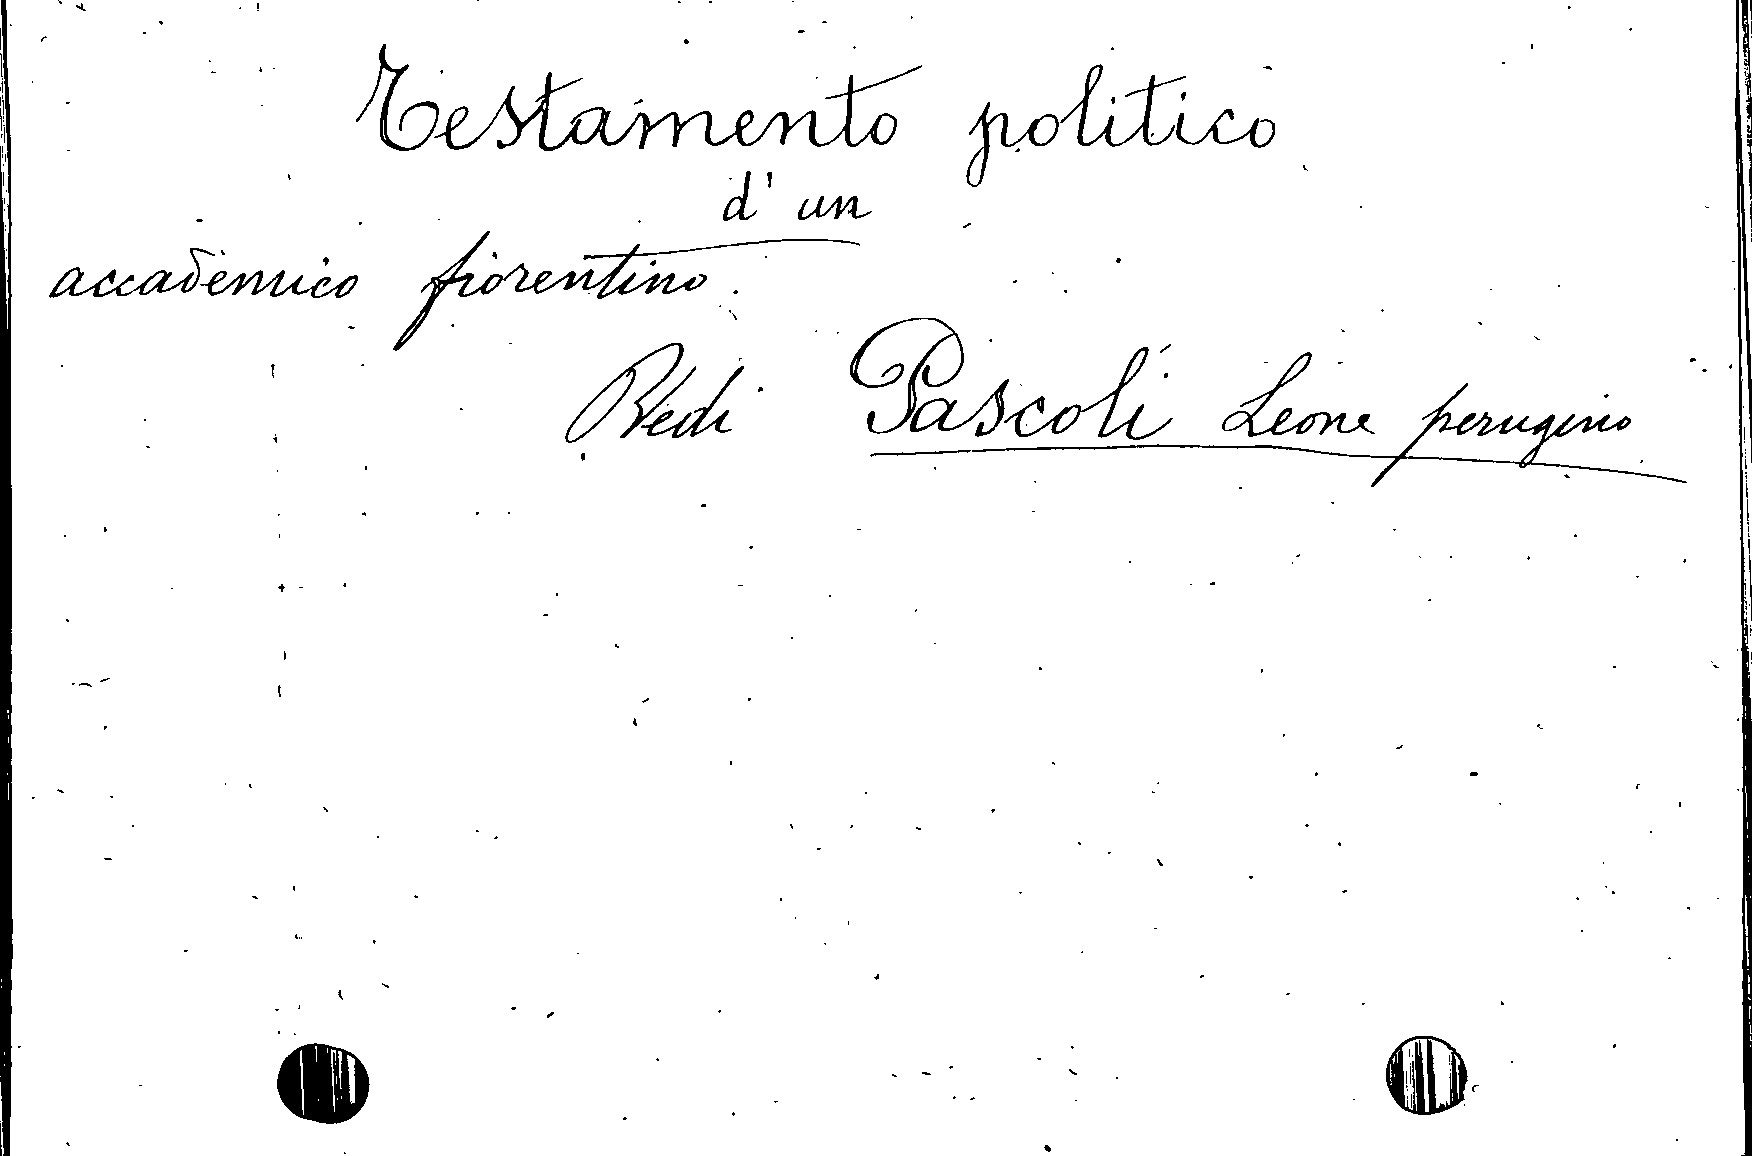 Testamento politico
d'un
accademico fiorentino.
Vedi Pascoli Leone perugino